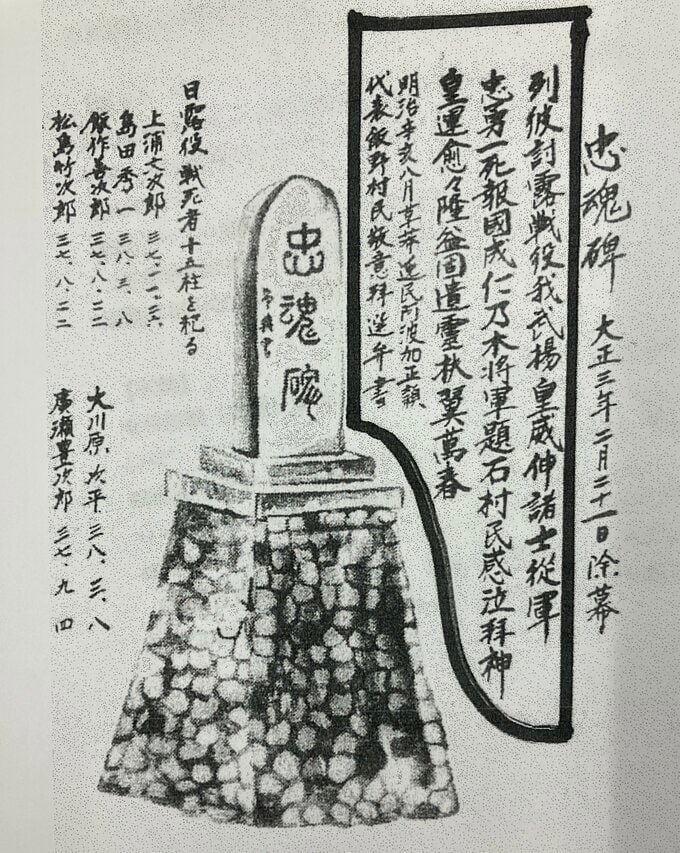 忠魂碑 大正三年二月二十一日除幕
列彼討露戦役我武揚皇威伸諸士従軍
忠勇一死報國成仁乃木将軍題石村民感泣拝神
皇運愈々隆益固遺霊扶翼萬春
明治辛亥八月草莽逸民阿波加正穎
代表飯野村民敬意拝選弁書
忠魂碑
希典書
日露役戦死者十五柱を祀る
上浦文次郎 三七、一一、二六
島田秀一 三八、三、八
飯作喜次郎 三七、八、二二
松島竹次郎 三七、八、二二
大川原次平 三八、三、八
廣瀬豊次郎 三七、九、四